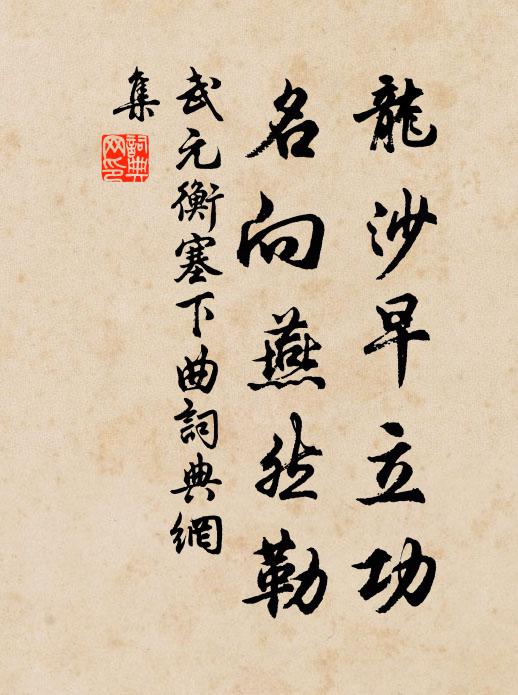 龍沙早立功
名向燕然勒
武元衡塞下曲詞典網
集
詞典
网印